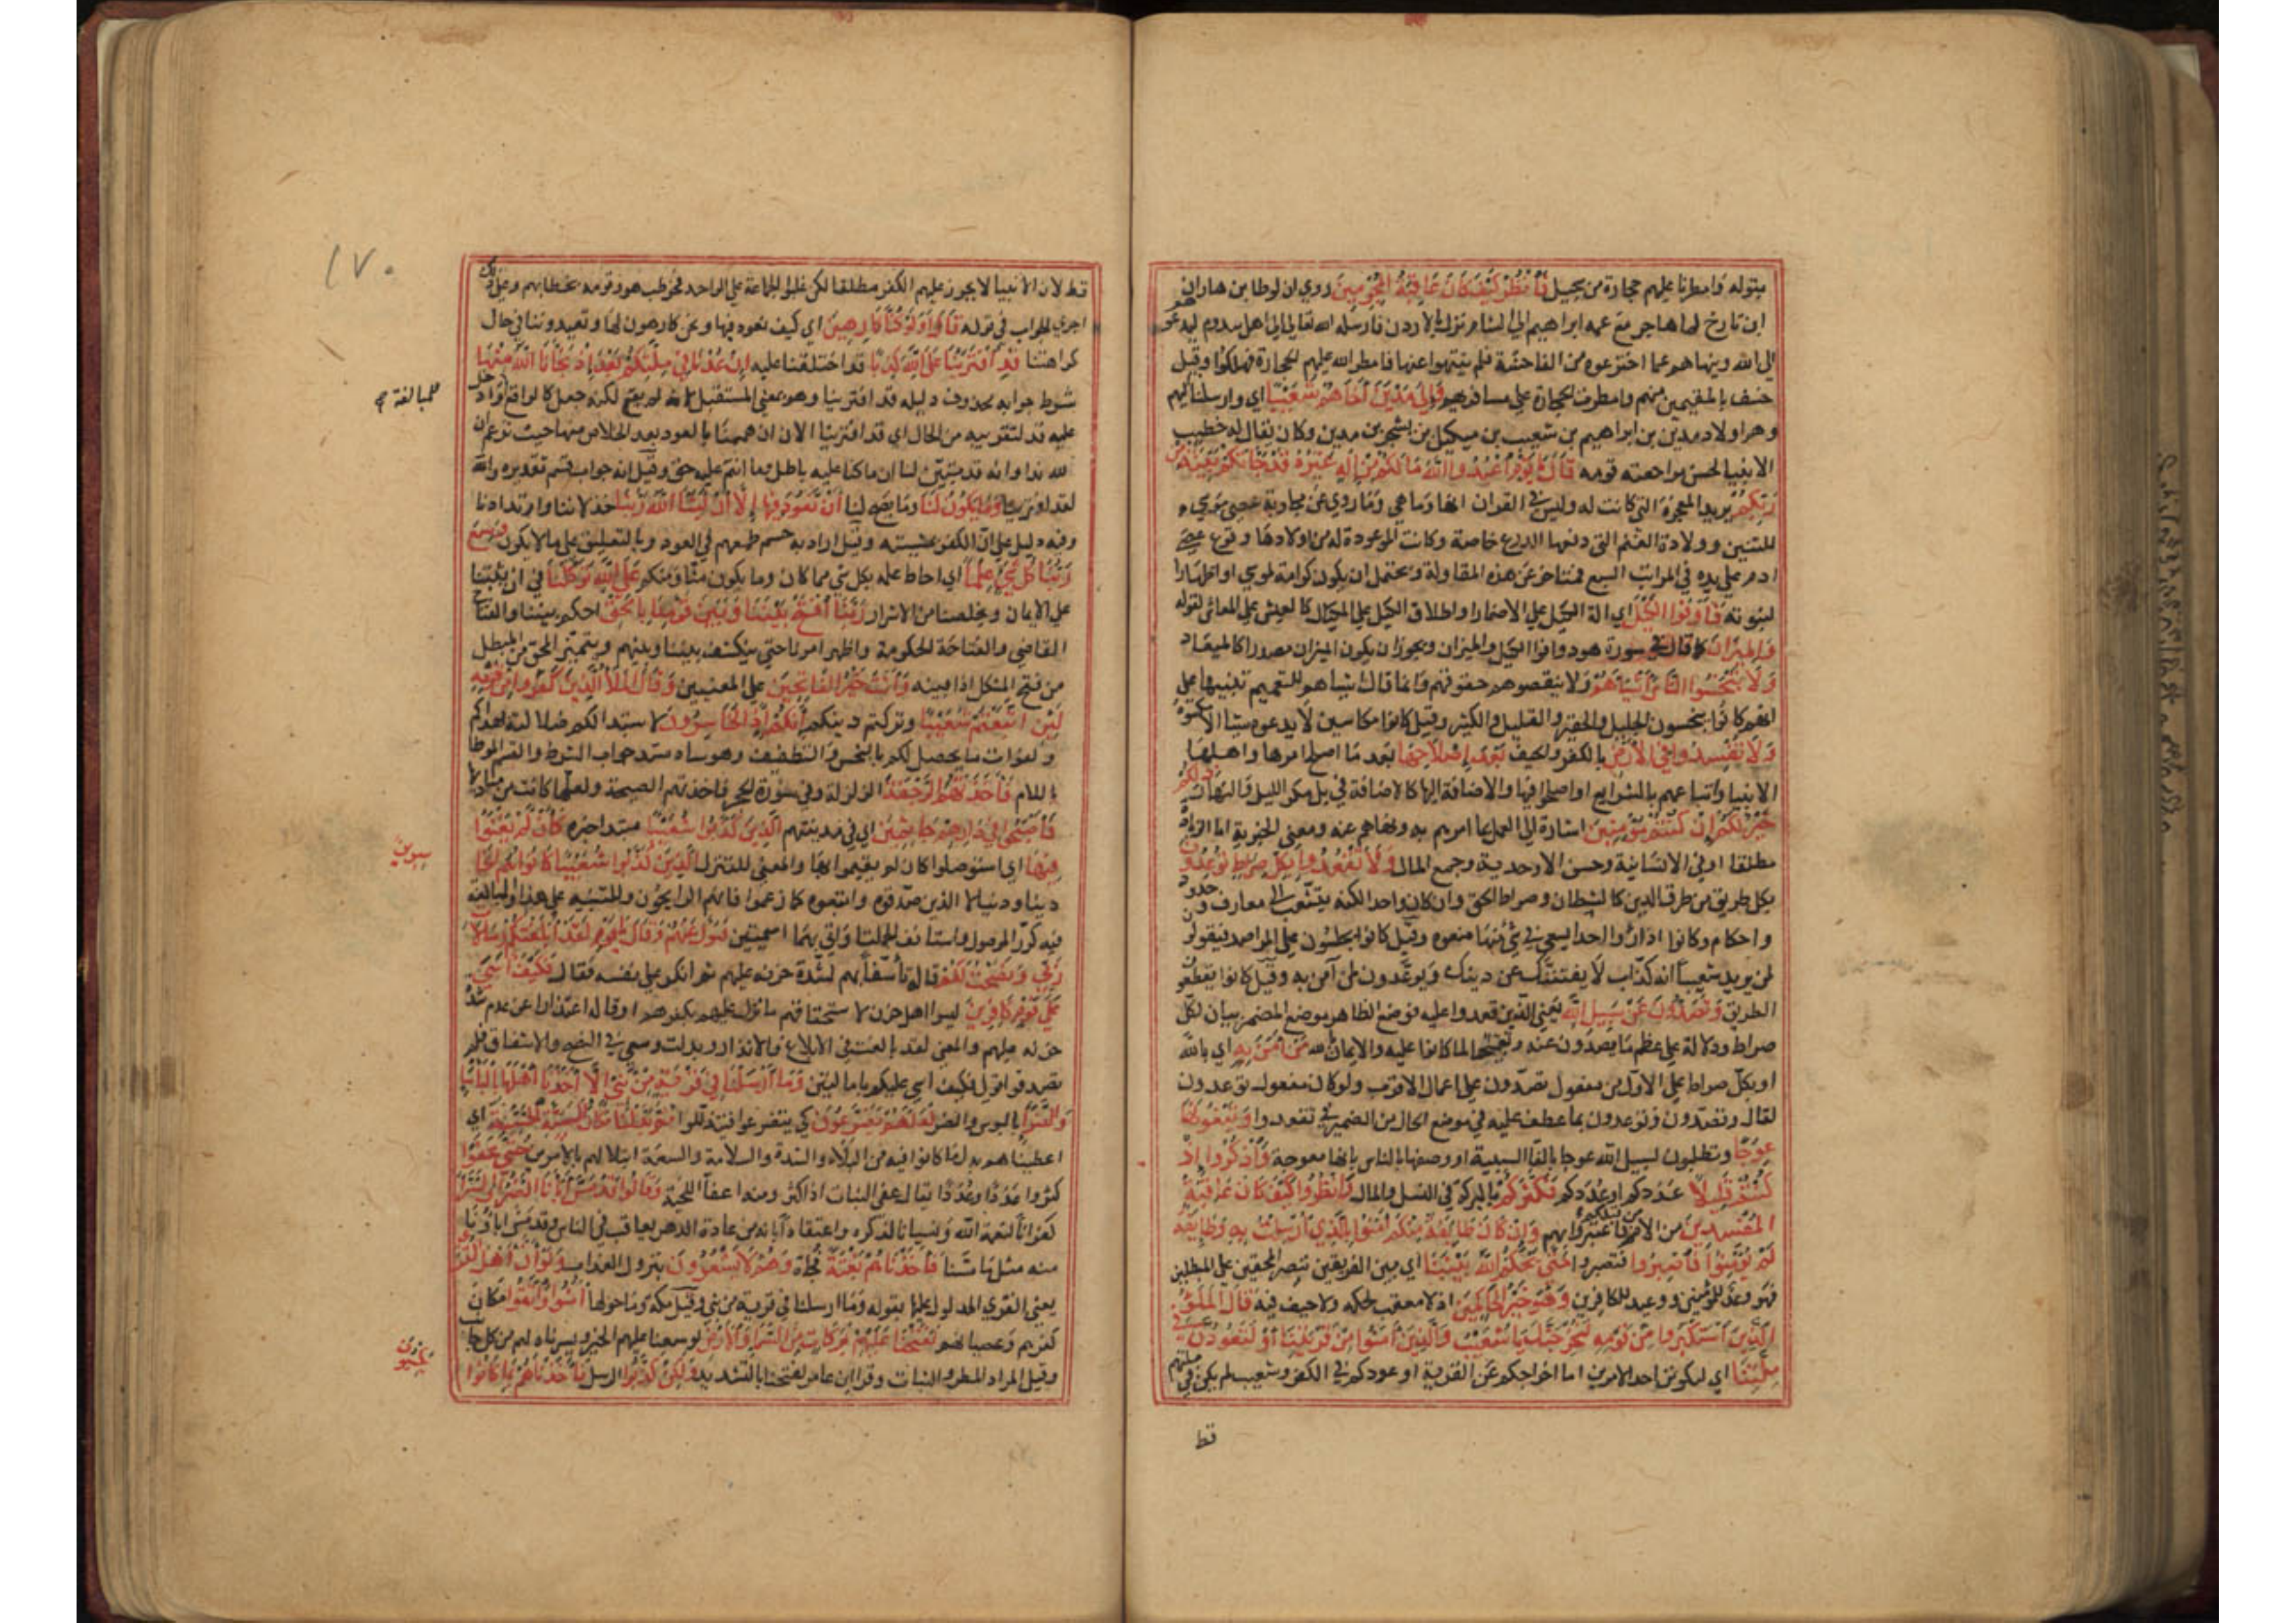 بقوله وامطرنا عليهم حجارة من سجيل فَانْظُرْ كَيْفَ كَانَ عَاقِبَةُ الْمُجْرِمِينَ روي ان لوطا بن هاران
ابن تارخ لما هاجر مع عمه ابراهيم الى الشام نزل بالاردن فارسله الله تعالى الى اهل سدوم ليدعوهم
الى الله وينهاهم عما اخترعوه من الفاحشة فلم ينتهوا عنها فامطر الله عليهم الحجارة فهلكوا وقيل
خسف بالمقيمين منهم وامطرت الحجارة على مسافريهم وَاِلَى مَدْيَنَ اَخَاهُمْ شُعَيْبًا اي وارسلنا اليهم
وهم اولاد مدين بن ابراهيم بن شعيب بن ميكيل بن يشجر بن مدين وكان يقال له خطيب
الانبيا لحسن مراجعته قومه قَالَ يَا قَوْمِ اعْبُدُوا اللَّهَ مَا لَكُمْ مِنْ اِلَهٍ غَيْرُهُ قَدْ جَاءَتْكُمْ بَيِّنَةٌ مِنْ
رَبِّكُمْ يريد المعجزة التي كانت له وليس في القران انها ما هي وما روي من محاربة عصى موسى
للتنين وولادة الغنم التي دفعها الدرع خاصة وكانت الموعودة له من اولادها ووقوع عصى
ادم على يده في المرات السبع فمتاخر عن هذه المقاولة ويحتمل ان يكون كرامة لموسى او ارهاصا
لنبوته فَاَوْفُوا الْكَيْلَ اي الة الكيل على الاضمار او اطلاق الكيل على المكيال كالعيش على المعاش لقوله
وَالْمِيزَانَ كما قال في سورة هود وافوا الكيل والميزان ويجوز ان يكون الميزان مصدرا كالميعاد
وَلَا تَبْخَسُوا النَّاسَ اَشْيَاءَهُمْ ولا تنقصوهم حقوقهم وانما قال اشياهم للتعميم تنبيها على
انهم كانوا يبخسون الجليل والحقير والقليل والكثير وقيل كانوا مكاسين لا يدعون شيا الا مكسوه
وَلَا تُفْسِدُوا فِي الْاَرْضِ بالكفر والحيف بَعْدَ اِصْلَاحِهَا بعد ما اصلح امرها واهلها
الانبيا واتباعهم بالشرايع او اصلحوا فيها والاضافة اليها كالاضافة في بل مكر الليل والنهار ذَلِكُمْ
خَيْرٌ لَكُمْ اِنْ كُنْتُمْ مُؤْمِنِينَ اشارة الى العمل بما امرهم به ونهاهم عنه ومعنى الخيرية اما الزيادة
مطلقا او في الانسانية وحسن الاحدوثة وجمع المال وَلَا تَقْعُدُوا بِكُلِّ صِرَاطٍ تُوعِدُونَ
بكل طريق من طرق الدين كالشيطان وصراط الحق وان كان واحدا لكنه يتشعب الى معارف وحدود
واحكام وكانوا اذا راوا احدا يسعى في شي منها منعوه وقيل كانوا يجلسون على المراصد فيقولون
لمن يريد شعيبا انه كذاب لا يفتننك عن دينك ويوعدون لمن آمن به وقيل كانوا يقطعون
الطريق وَتَصُدُّونَ عَنْ سَبِيلِ اللَّهِ يعني الذي قعدوا عليه فوضع الظاهر موضع المضمر بيانا لكل
صراط ودلالة على عظم ما يصدون عنه وتقبيحا لما كانوا عليه والايمان بالله مَنْ آمَنَ بِهِ اي بالله
او بكل صراط على الاول من مفعول تصدون على اعمال الاقرب ولو كان مفعول توعدون
لقال وتصدونهم وتوعدون بما عطف عليه في موضع الحال من الضمير في تقعدوا وَتَبْغُونَهَا
عِوَجًا وتطلبون لسبيل الله عوجا بالقا الشبه او وصفها للناس بانها معوجة وَاذْكُرُوا اِذْ
كُنْتُمْ قَلِيلًا عَدَدكم او عُدَدكم فَكَثَّرَكُمْ بالبركة في النسل والمال وَانْظُرُوا كَيْفَ كَانَ عَاقِبَةُ
الْمُفْسِدِينَ من الامم قبلكم فاعتبروا بهم وَاِنْ كَانَ طَائِفَةٌ مِنْكُمْ آمَنُوا بِالَّذِي اُرْسِلْتُ بِهِ وَطَائِفَةٌ
لَمْ يُؤْمِنُوا فَاصْبِرُوا فتصبروا حَتَّى يَحْكُمَ اللَّهُ بَيْنَنَا اي بين الفريقين بنصر المحقين على المبطلين
فهو وعد للمؤمنين ووعيد للكافرين وَهُوَ خَيْرُ الْحَاكِمِينَ اذ لا معقب لحكمه ولا حيف فيه قَالَ الْمَلَاُ
الَّذِينَ اسْتَكْبَرُوا مِنْ قَوْمِهِ لَنُخْرِجَنَّكَ يَا شُعَيْبُ وَالَّذِينَ آمَنُوا مَعَكَ مِنْ قَرْيَتِنَا اَوْ لَتَعُودُنَّ فِي
مِلَّتِنَا اي ليكونن احد الامرين اما اخراجكم عن القرية او عودكم في الكفر وشعيب لم يكن في ملتهم
قط
١٧٠
قط لان الانبيا لا يجوز عليهم الكفر مطلقا لكن غلبوا الجماعة على الواحد فخوطب هو وقومه بخطابهم وعلى ذلك
اجرى الجواب في قوله قَالَ اَوَلَوْ كُنَّا كَارِهِينَ اي كيف نعود فيها ونحن كارهون لها او تعيدوننا في حال
كراهتنا قَدِ افْتَرَيْنَا عَلَى اللَّهِ كَذِبًا قد اختلقنا عليه اِنْ عُدْنَا فِي مِلَّتِكُمْ بَعْدَ اِذْ نَجَّانَا اللَّهُ مِنْهَا
شرط جوابه محذوف دليله قد افترينا وهو بمعنى المستقبل لانه لم يقع لكنه جعل كالواقع وادخل
للمبالغة
عليه قد لتقريبه من الحال اي قد افترينا الان ان هممنا بالعود بعد الخلاص منها حيث نزعم ان
لله ندا وانه قد تبين لنا ان ما كنا عليه باطل وما انتم عليه حق وقيل انه جواب قسم تقديره والله
لقد افترينا وَمَا يَكُونُ لَنَا وما يصح لنا اَنْ نَعُودَ فِيهَا اِلَّا اَنْ يَشَاءَ اللَّهُ رَبُّنَا خذلاننا وارتدادنا
وفيه دليل على ان الكفر بمشيته وقيل اراد به حسم طمعهم في العود وبالتعليق على ما لا يكون وَسِعَ
رَبُّنَا كُلَّ شَيْءٍ عِلْمًا اي احاط علمه بكل شي مما كان وما يكون منا ومنكم عَلَى اللَّهِ تَوَكَّلْنَا في ان يثبتنا
على الايمان ويخلصنا من الاشرار رَبَّنَا افْتَحْ بَيْنَنَا وَبَيْنَ قَوْمِنَا بِالْحَقِّ احكم بيننا والفتاح
القاضي والفتاحة الحكومة او اظهر امرنا حتى ينكشف بيننا وبينهم ويتميز المحق من المبطل
من فتح المشكل اذا بينه وَاَنْتَ خَيْرُ الْفَاتِحِينَ على المعنيين وَقَالَ الْمَلَاُ الَّذِينَ كَفَرُوا مِنْ قَوْمِهِ
لَئِنِ اتَّبَعْتُمْ شُعَيْبًا وتركتم دينكم اِنَّكُمْ اِذًا لَخَاسِرُونَ لاستبدالكم ضلالته بهداكم
او لفوات ما يحصل لكم بالبخس والتطفيف وهو ساد مسد جواب الشرط والقسم الموطا
باللام فَاَخَذَتْهُمُ الرَّجْفَةُ الزلزلة وفي سورة الحجر فاخذتهم الصيحة ولعلها كانت من مباديها
فَاَصْبَحُوا فِي دَارِهِمْ جَاثِمِينَ اي في مدينتهم الَّذِينَ كَذَّبُوا شُعَيْبًا مبتدا خبره كَاَنْ لَمْ يَغْنَوْا
فِيهَا اي استوصلوا كان لم يقيموا بها والمعنى المنزل الَّذِينَ كَذَّبُوا شُعَيْبًا كَانُوا هُمُ الْخَا
سِرِينَ
دينا ودنيا لا الذين صدقوه واتبعوه كما زعموا فانهم الرابحون وللتنبيه على هذا والمبالغة
فيه كرر الموصول واستانف الجملتين واتى بهما اسميتين فَتَوَلَّى عَنْهُمْ وَقَالَ يَا قَوْمِ لَقَدْ اَبْلَغْتُكُمْ رِسَالَاتِ
رَبِّي وَنَصَحْتُ لَكُمْ قاله تاسفا بهم لشدة حزنه عليهم ثم انكر على نفسه فقال فَكَيْفَ آسَى
عَلَى قَوْمٍ كَافِرِينَ ليسوا اهل حزن لاستحقاقهم ما نزل عليهم بكفرهم او قاله اعتذارا عن عدم شدة
حزنه عليهم والمعنى لقد بالغت في الابلاغ والانذار وبذلت وسعي في النصح والاشفاق فلم
تصدقوا قولي فكيف اسى عليكم وَمَا اَرْسَلْنَا فِي قَرْيَةٍ مِنْ نَبِيٍّ اِلَّا اَخَذْنَا اَهْلَهَا بِالْبَأْسَاءِ
وَالضَّرَّاءِ بالبوس والضر لَعَلَّهُمْ يَضَّرَّعُونَ كي يتضرعوا ويتذللوا ثُمَّ بَدَّلْنَا مَكَانَ السَّيِّئَةِ الْحَسَنَةَ اي
اعطيناهم بدل ما كانوا فيه من البلاء والشدة والسلامة والسعة ابتلا لهم بالامرين حَتَّى عَفَوْا
كثروا عَدَدًا وعُدَدًا يقال عفى النبات اذا كثر ومنه اعفا اللحية وَقَالُوا قَدْ مَسَّ آبَاءَنَا الضَّرَّاءُ وَالسَّرَّاءُ
كفرانا لنعمة الله ونسيانا لذكره واعتقادا بانه من عادة الدهر يعاقب في الناس وقد مس اباءنا
منه مثل ما مسنا فَاَخَذْنَاهُمْ بَغْتَةً فجاة وَهُمْ لَا يَشْعُرُونَ بنزول العذاب وَلَوْ اَنَّ اَهْلَ الْقُرَى
يعني القرى المدلول عليها بقوله وما ارسلنا في قرية من نبي وقيل مكة وما حولها آمَنُوا وَاتَّقَوْا مكان
كفرهم وعصيانهم لَفَتَحْنَا عَلَيْهِمْ بَرَكَاتٍ مِنَ السَّمَاءِ وَالْاَرْضِ لوسعنا عليهم الخير ويسرناه لهم من كل جانب
وقيل المراد المطر والنبات وقرا ابن عامر لفتحنا بالتشديد وَلَكِنْ كَذَّبُوا الرسل فَاَخَذْنَاهُمْ بِمَا كَانُوا
يَكْسِبُونَ